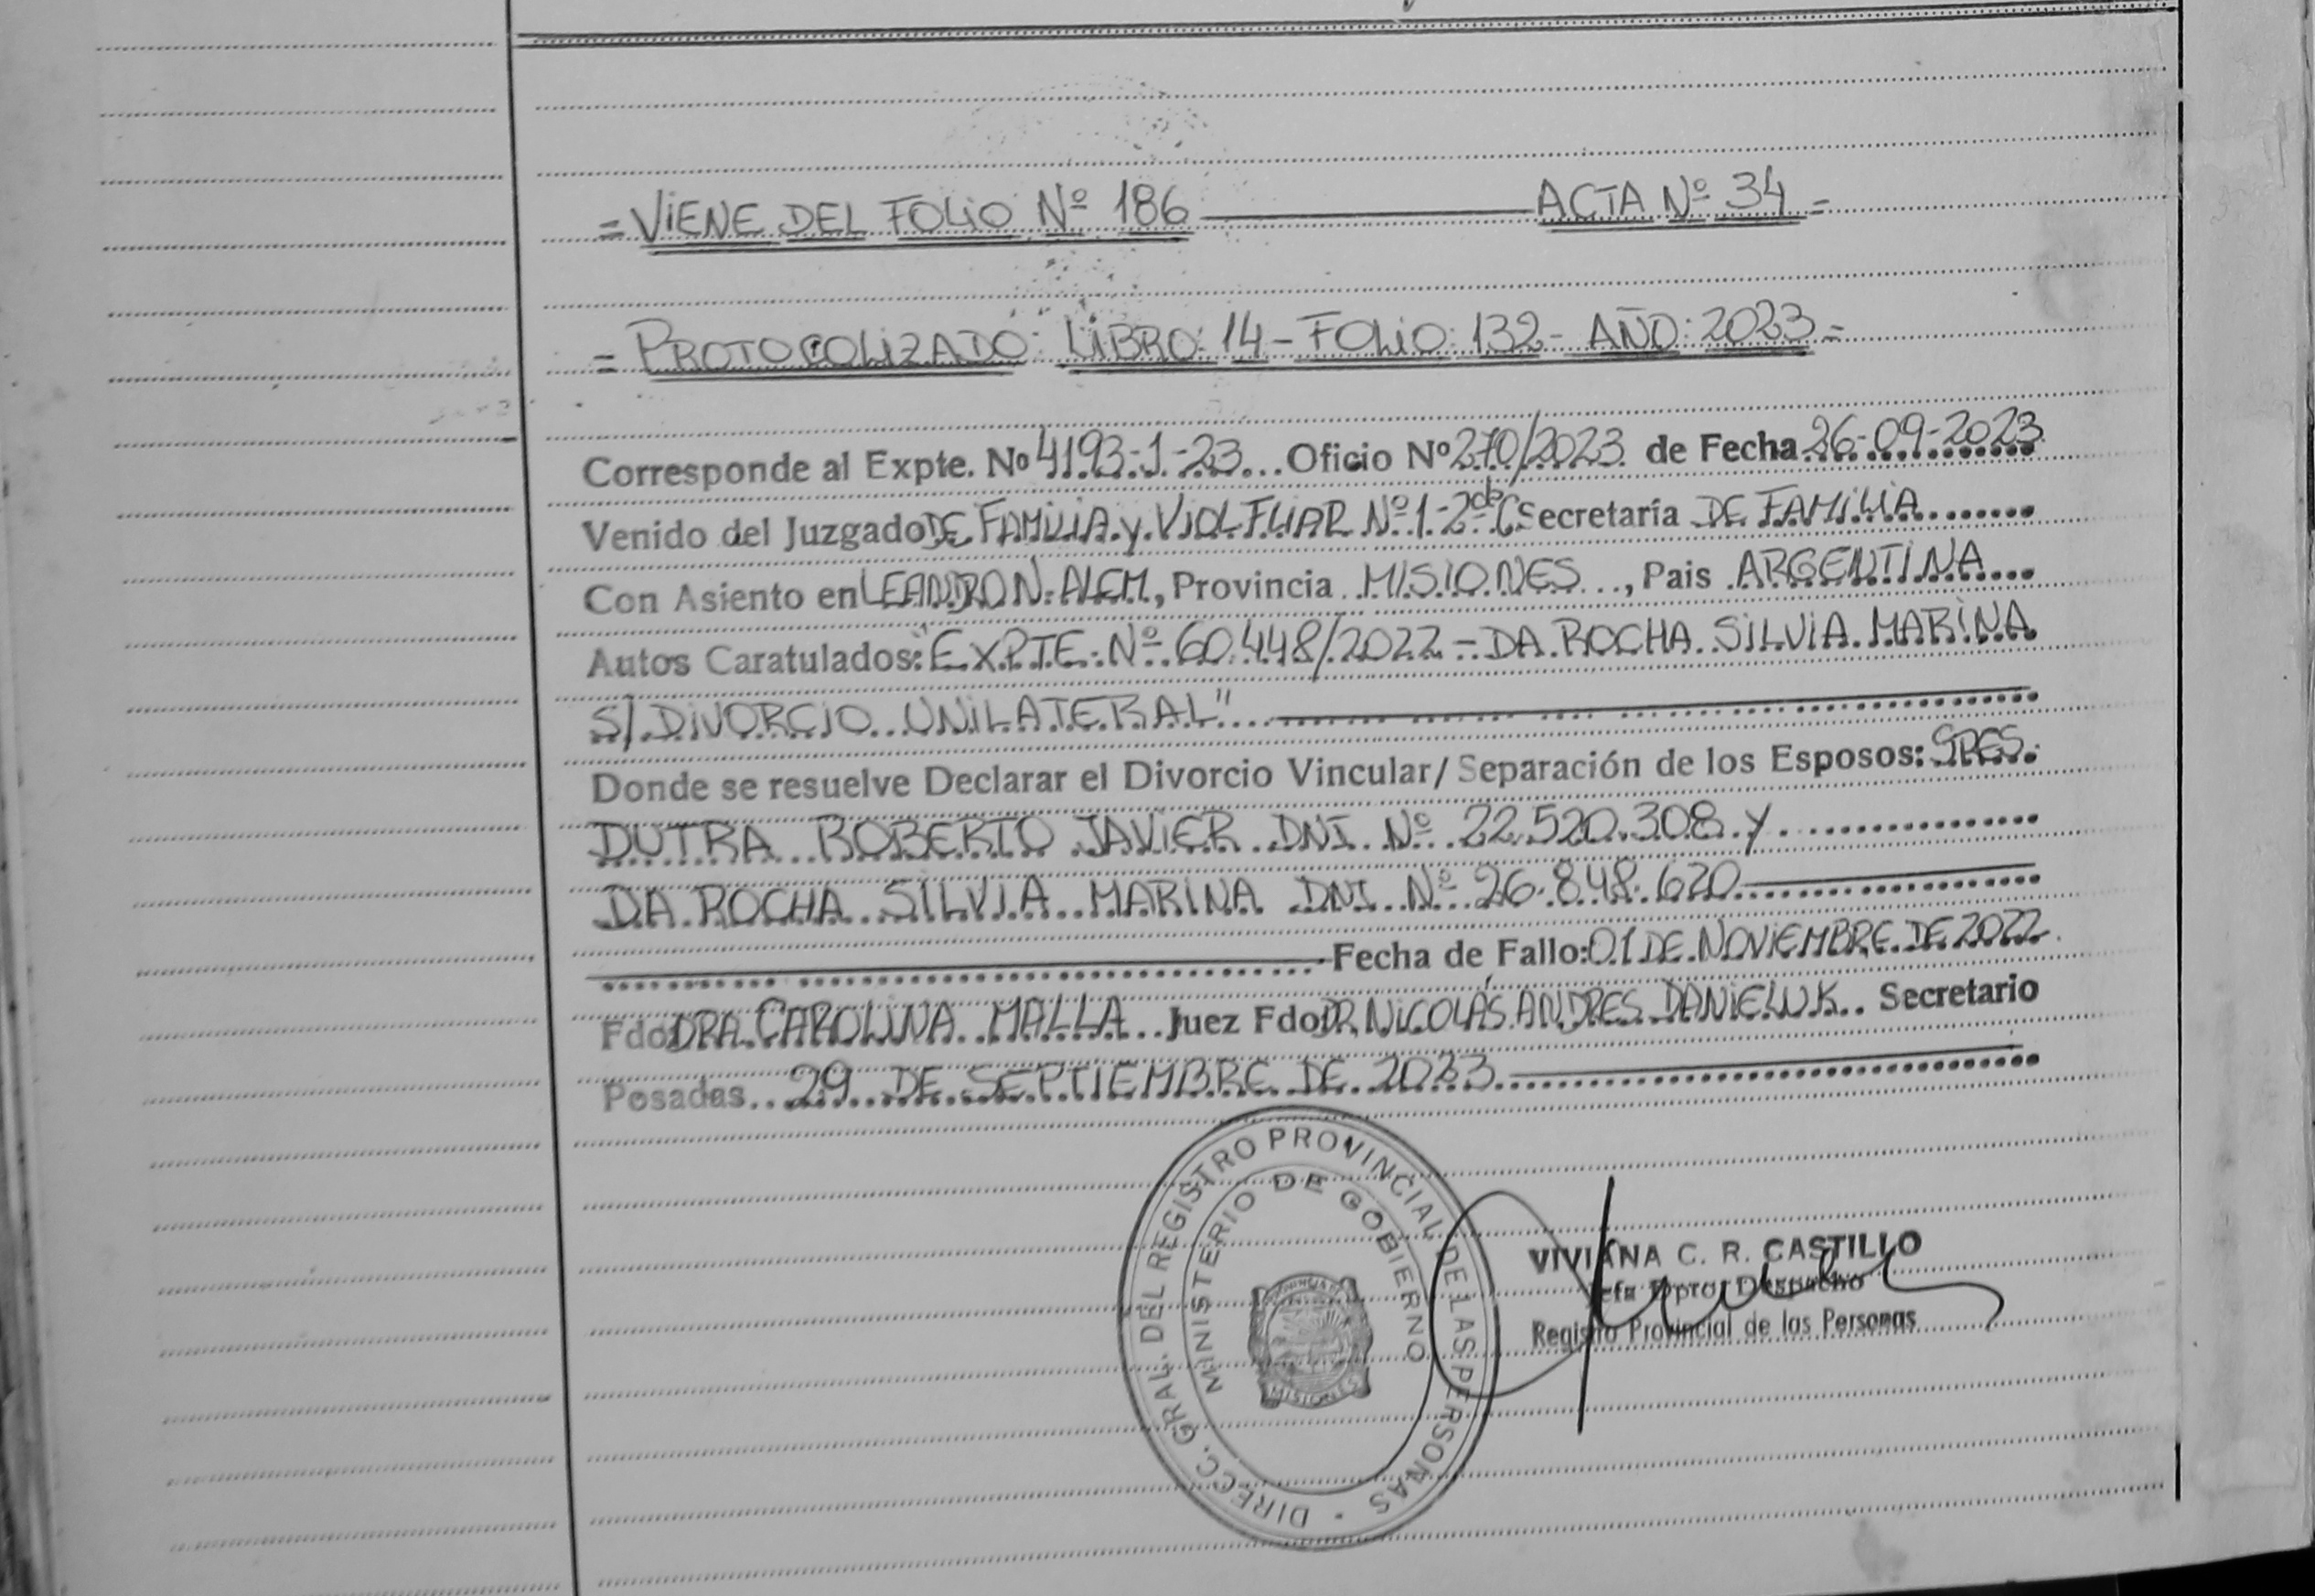 = VIENE DEL FOLIO Nº 186 ACTA Nº 34 =
= PROTOCOLIZADO: LIBRO: 14 - FOLIO: 132 - AÑO: 2023 =
Corresponde al Expte. Nº 4193-1-23... Oficio Nº 270/2023 de Fecha 26-09-2023
Venido del Juzgado DE FAMILIA y VIOL FLIAR Nº 1-2da C Secretaría DE FAMILIA
Con Asiento en LEANDRO N. ALEM, Provincia MISIONES, Pais ARGENTINA
Autos Caratulados: "EXPTE. Nº 60.448/2022 - DA ROCHA SILVIA MARINA
S/ DIVORCIO UNILATERAL"
Donde se resuelve Declarar el Divorcio Vincular/Separación de los Esposos: SRES.
DUTRA ROBERTO JAVIER DNI Nº 22.520.308 y
DA ROCHA SILVIA MARINA DNI Nº 26.848.620
Fecha de Fallo: 01 DE NOVIEMBRE DE 2022
Fdo DRA CAROLINA MALLA Juez Fdo DR. NICOLÁS ANDRES DANIELUK Secretario
Posadas 29 DE SEPTIEMBRE DE 2023
DIRECC. GRAL. DEL REGISTRO PROVINCIAL DE LAS PERSONAS
MINISTERIO DE GOBIERNO
MISIONES
VIVIANA C. R. CASTILLO
Jefa Dpto. Despacho
Registro Provincial de las Personas